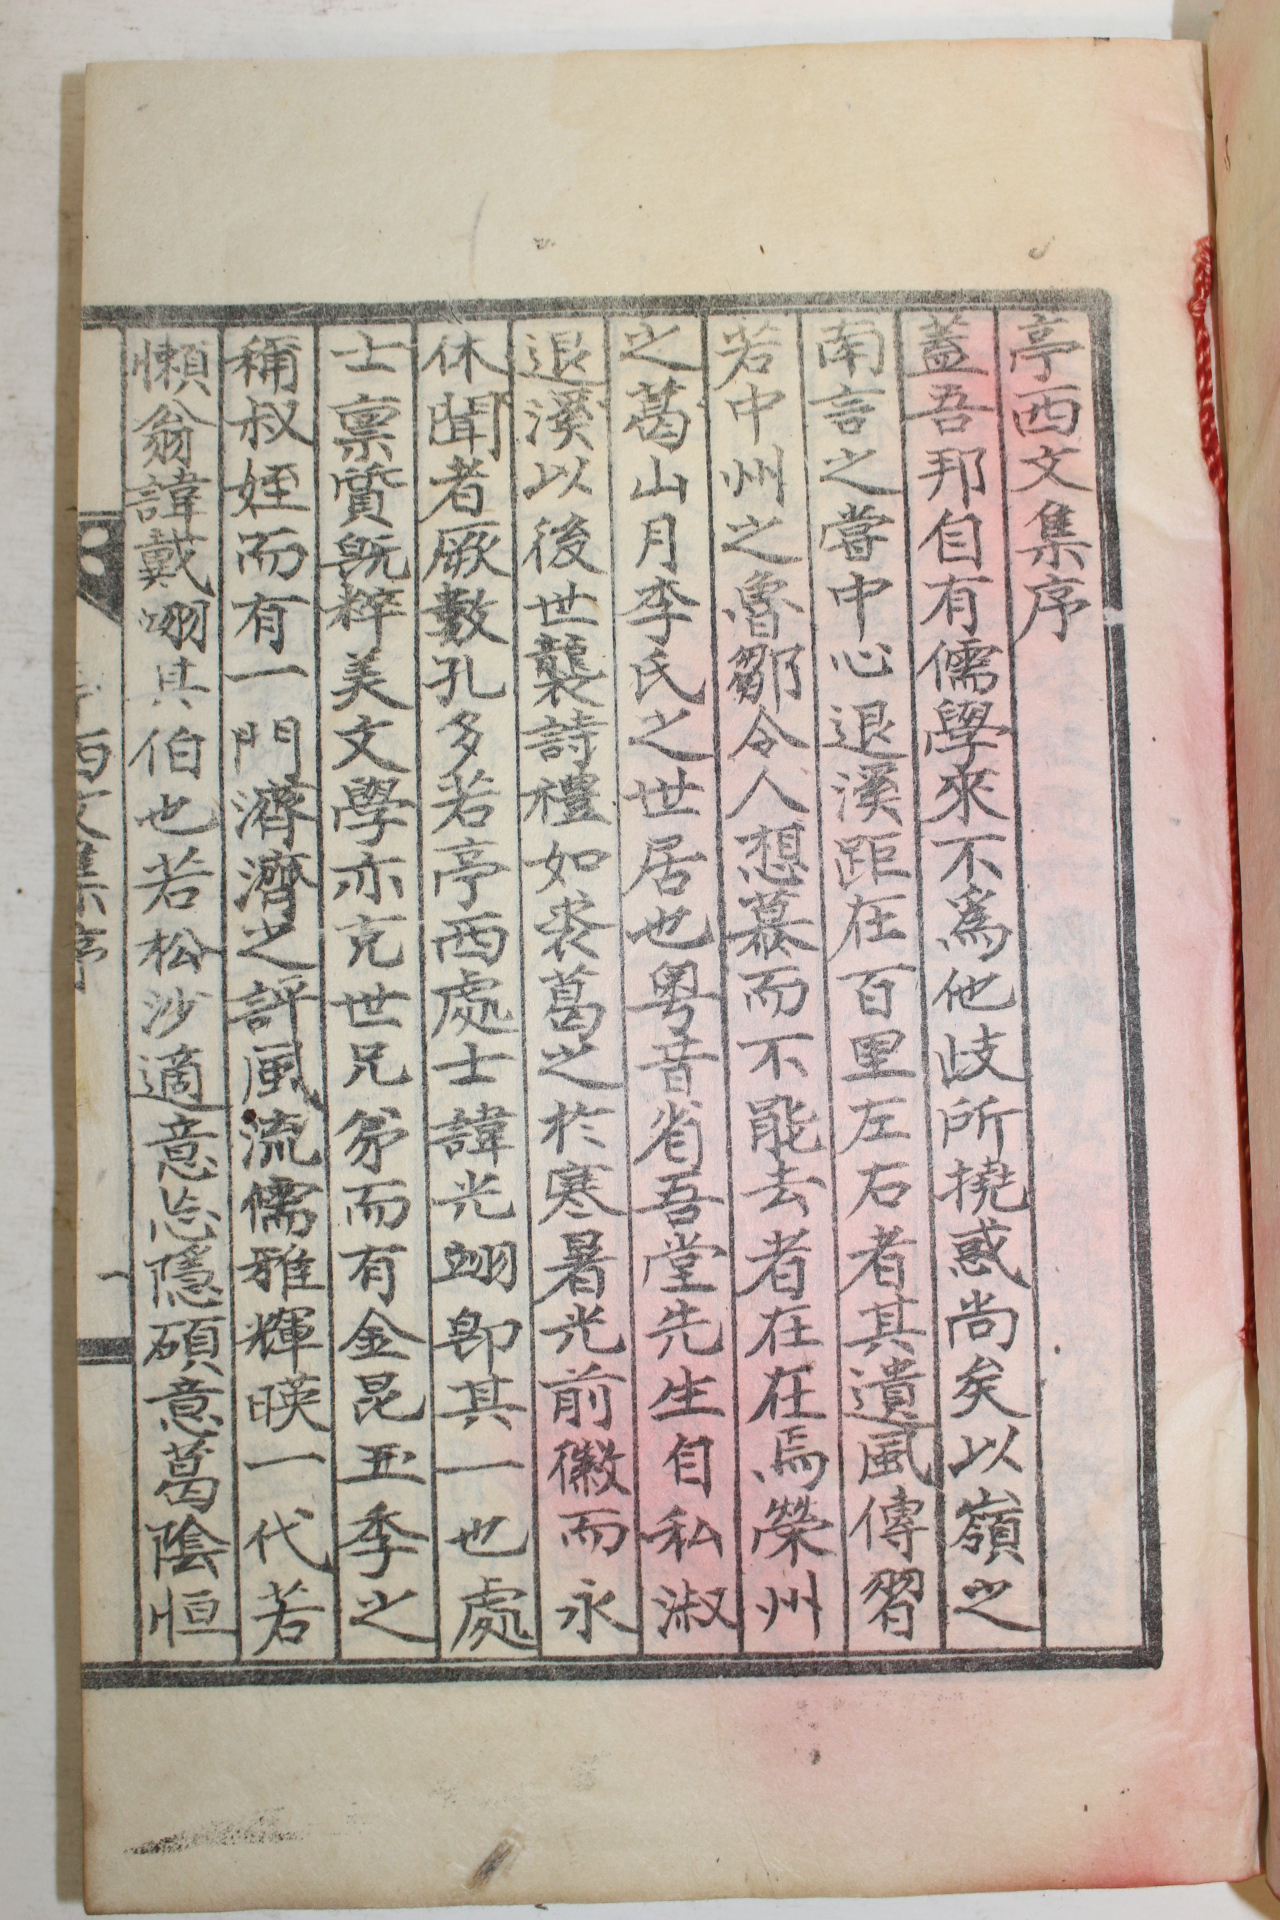 亭西文集序
蓋吾邦自有儒學來不爲他歧所撓惑尚矣以嶺之
南言之當中心退溪距在百里左右者其遺風傳習
若中州之魯鄒令人想慕而不能去者在在焉榮州
之葛山月李氏之世居也粤昔省吾堂先生自私淑
退溪以後世襲詩禮如裘葛之於寒暑光前徽而永
休聞者厥數孔多若亭西處士諱光翊卽其一也處
士稟質旣粹美文學亦克世兄弟而有金昆玉季之
稱叔姪而有一門濟濟之評風流儒雅輝暎一代若
懶翁諱戴翊其伯也若松沙適意忘隱碩意葛陰恒
亭西文集序
一